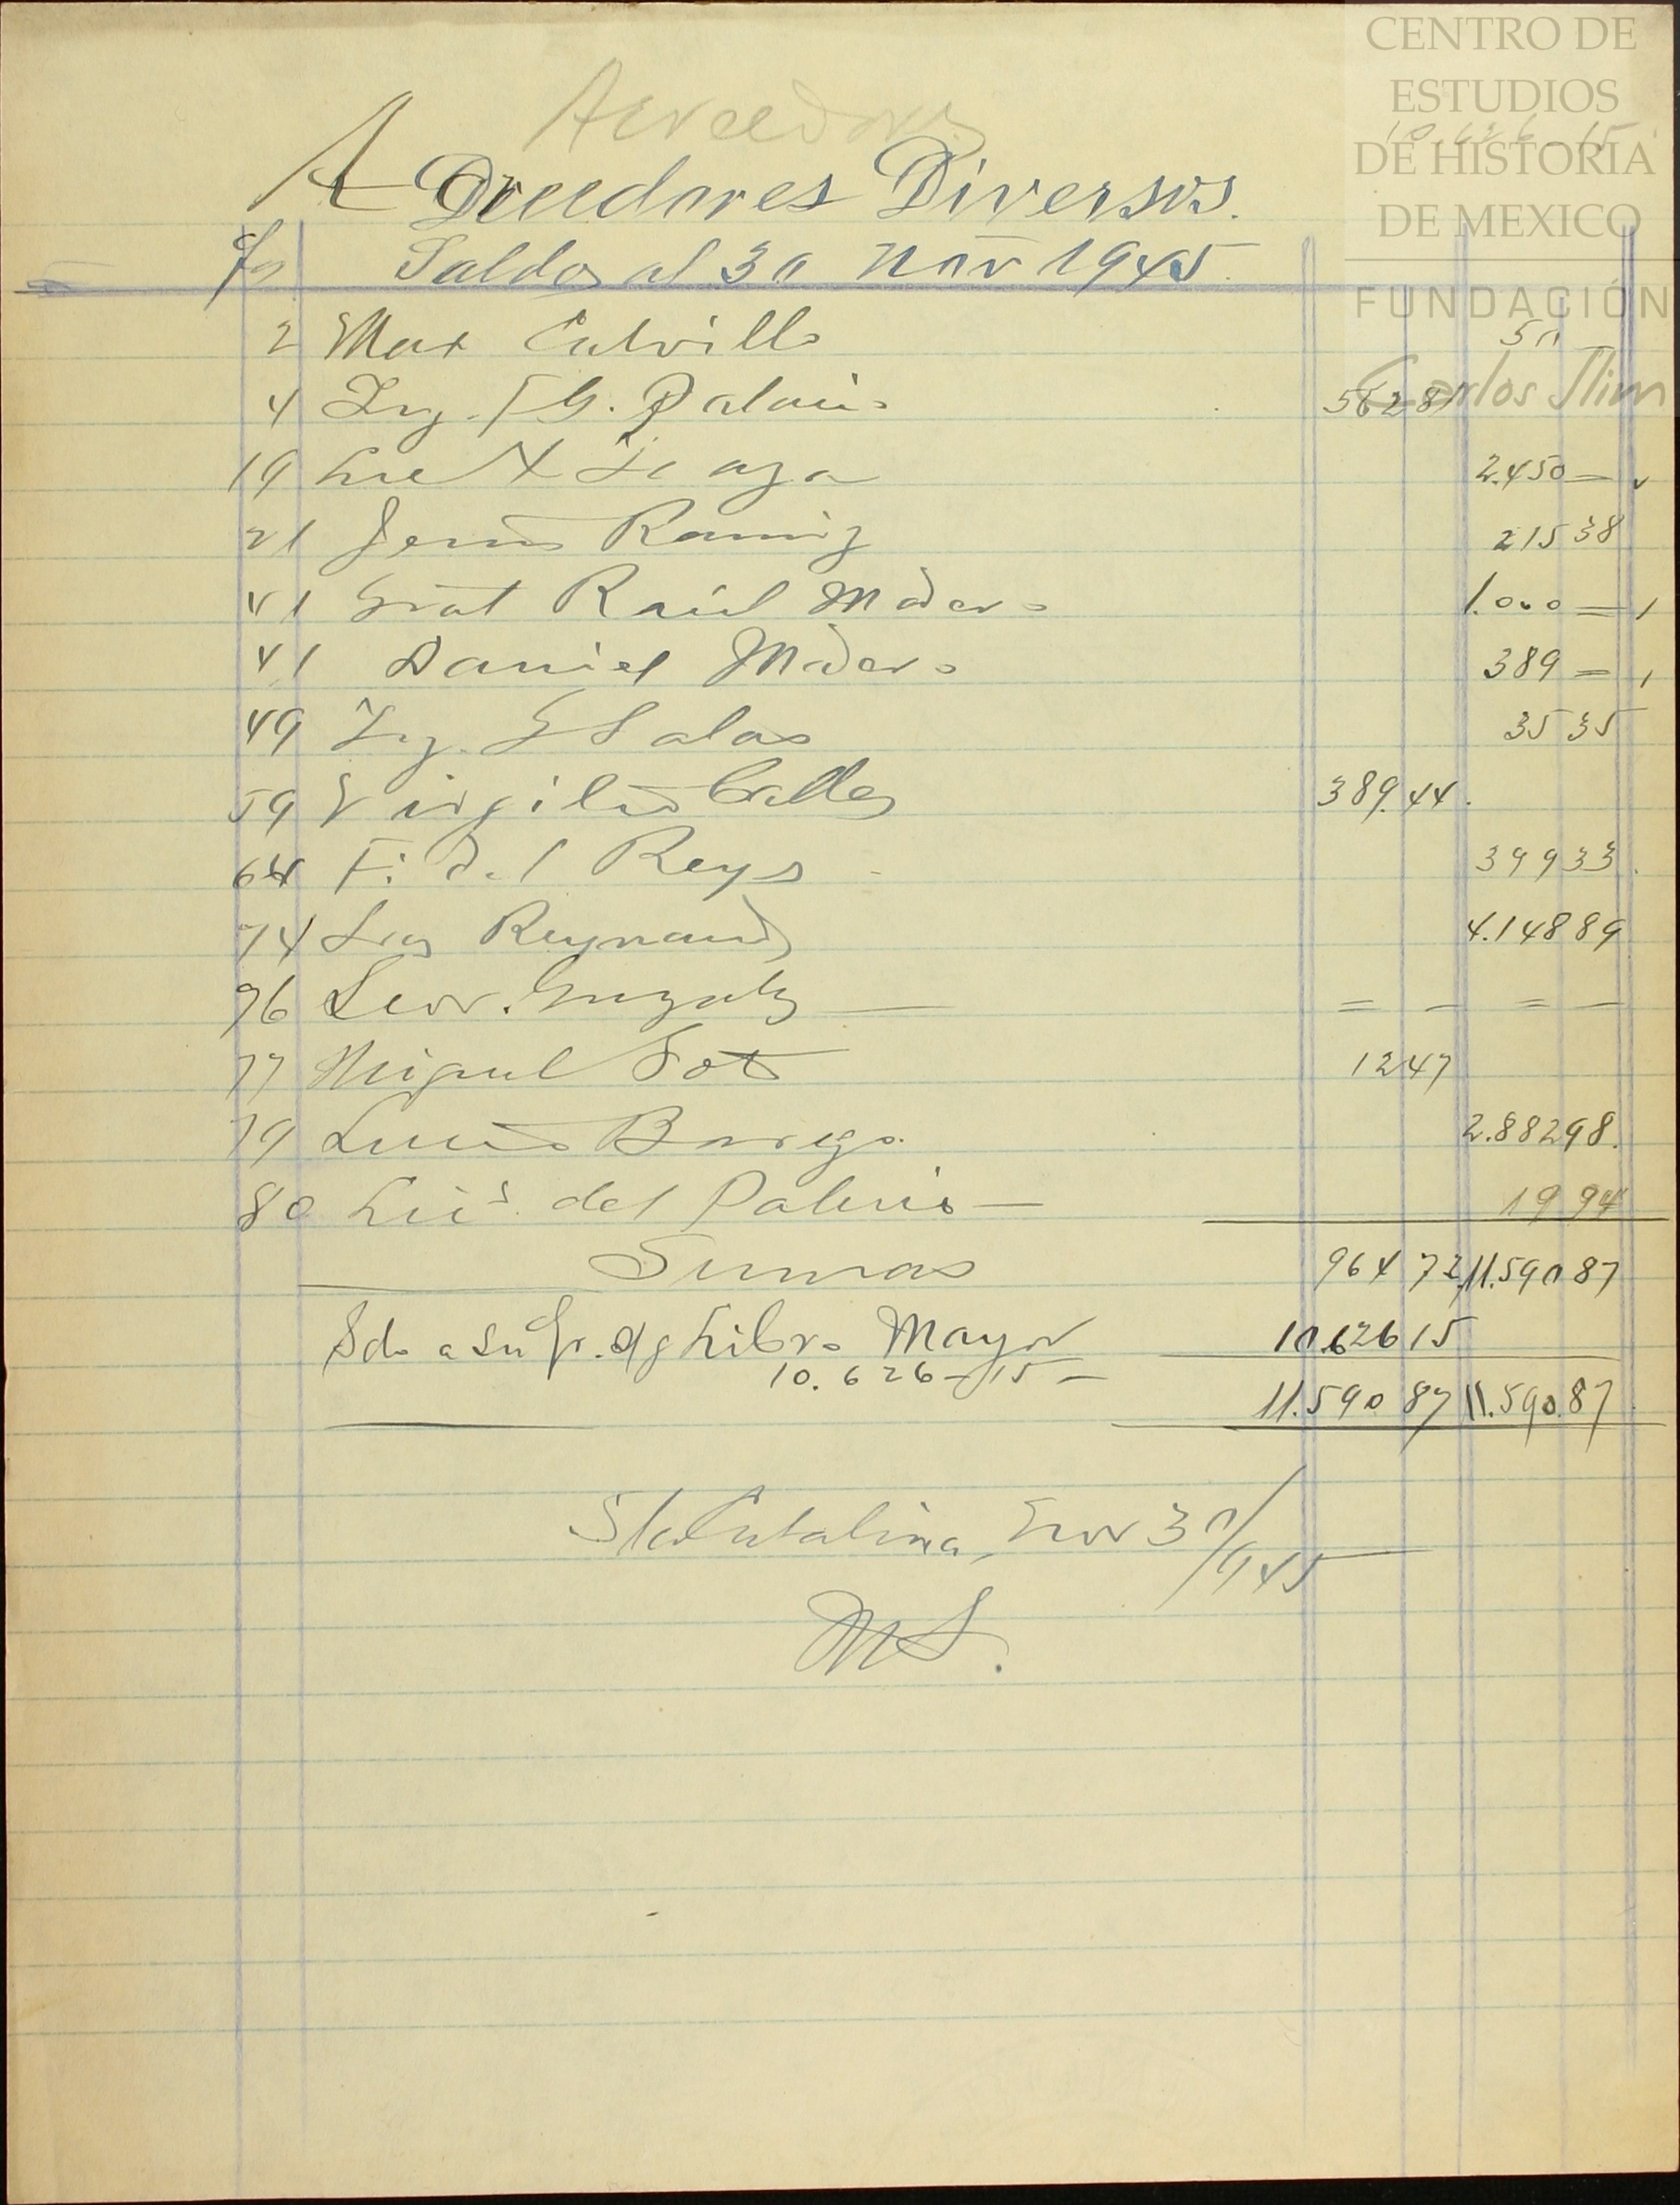 CENTRO DE
ESTUDIOS
DE HISTORIA
DE MEXICO
FUNDACIÓN
Carlos Slim
Acreedores
10.626.15
Acreedores Diversos.
Fos Saldos al 30 Nov 1945
2 Max Calvillo 50
4 Ing. F G. Palacio 562 81
19 2.450 —
21 Jesus Ramirz 215 38
41 Gral Raúl Madero 1.000 =
41 Daniel Madero 389 =
49 Ing. G Salas 35 35
59 Virgilio Calles 389.44.
64 F. del Reys 399 33.
74 Reynaud 4.148 89
76 Leon. Gonzalz — = — = —
77 Miguel Soto 12 47
79 Luis Borrego. 2.882 98.
80 Lic. del Palacio — 19 94
Sumas 964 72 11.590 87
Sdo a Su Libro Mayor 10.626 15
10.626 — 15 —
11.590 87 11.590.87
Sta Catalina, Nov 30/945
MS.